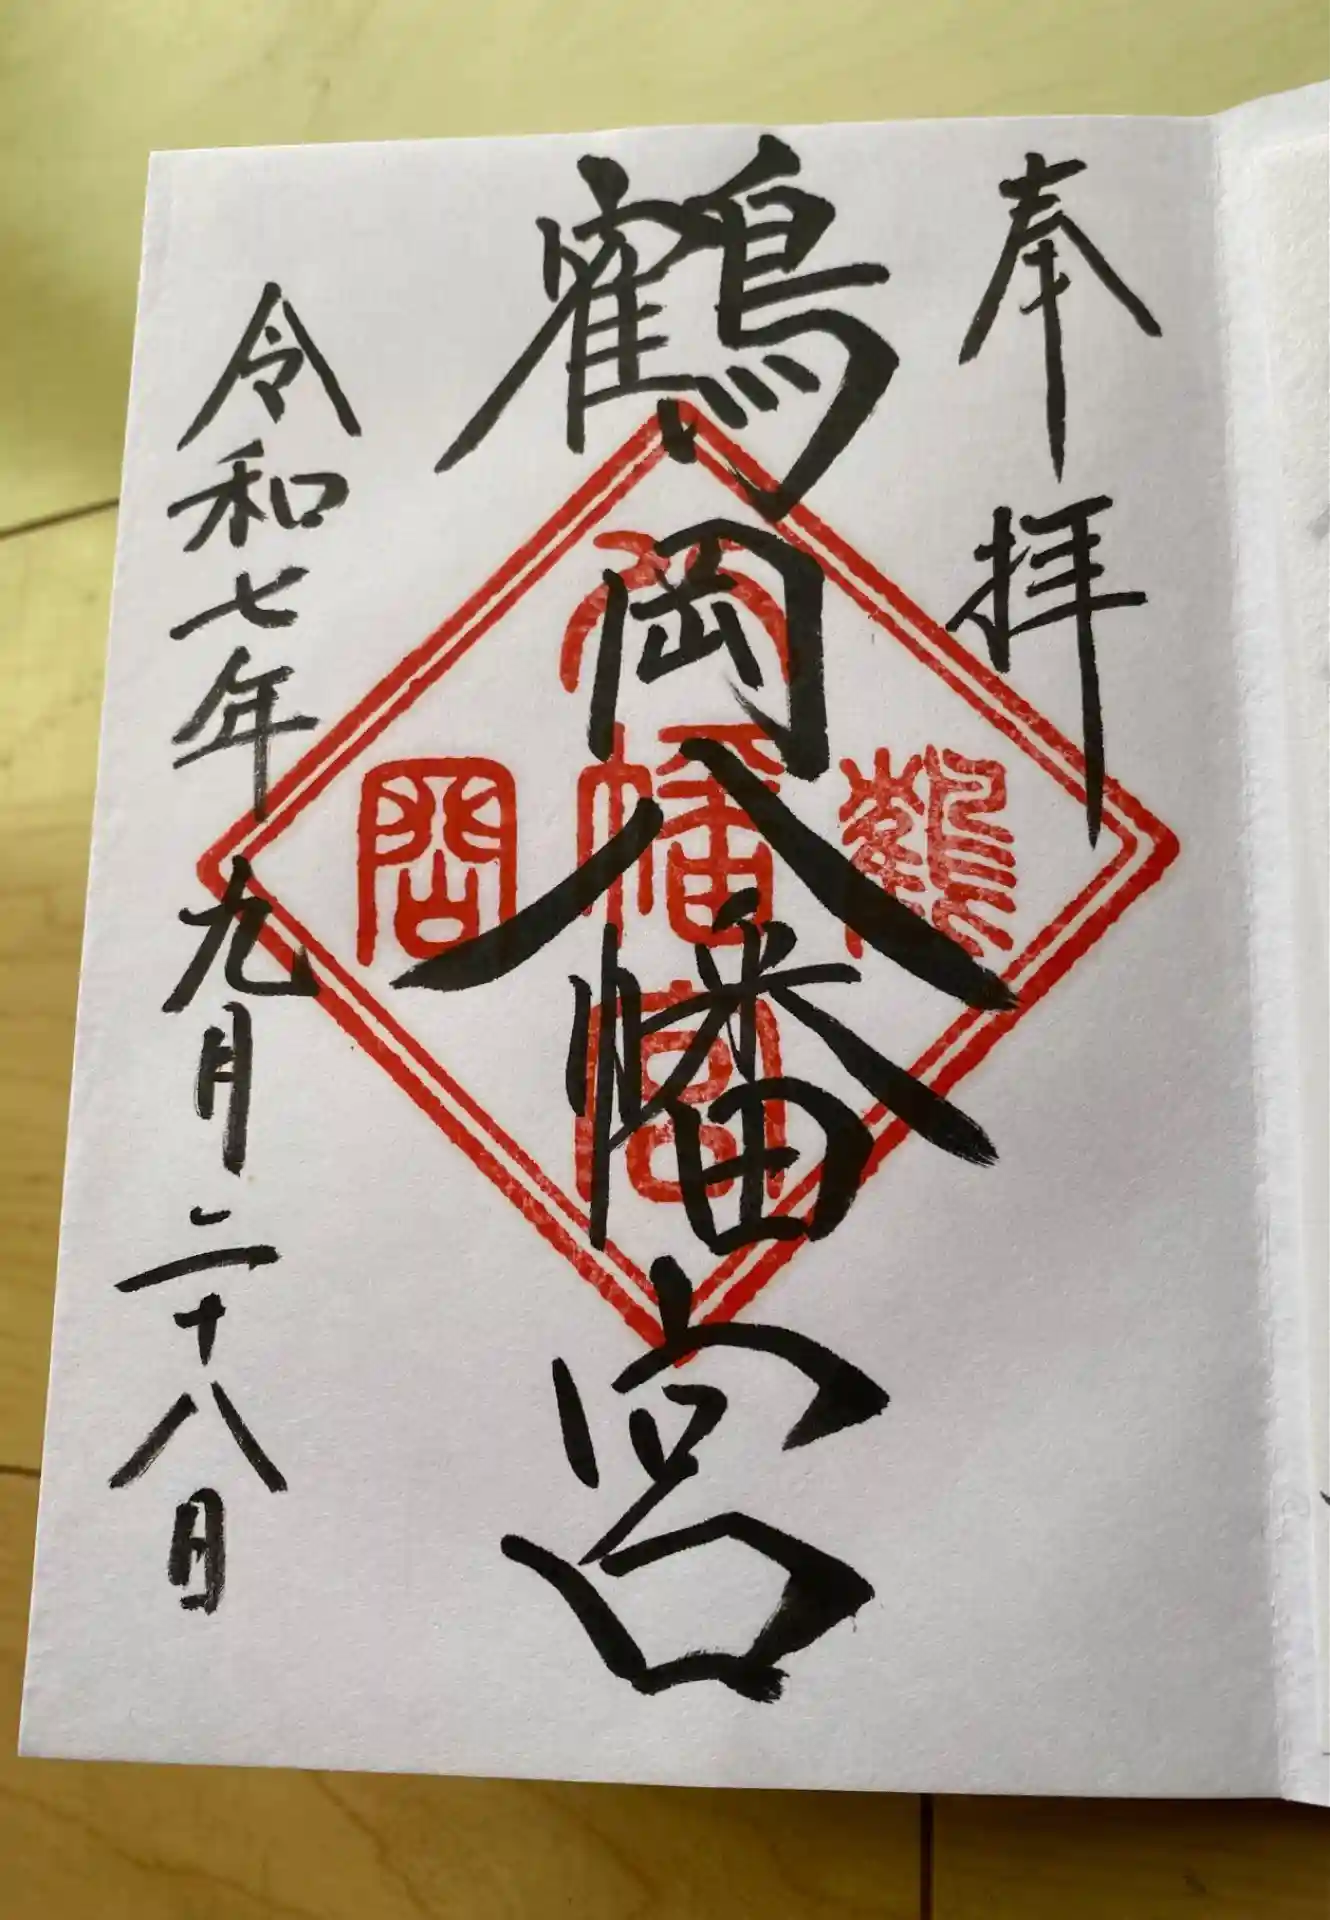 奉拝
鶴岡八幡宮
鶴
八幡宮
岡
令和七年九月二十八日